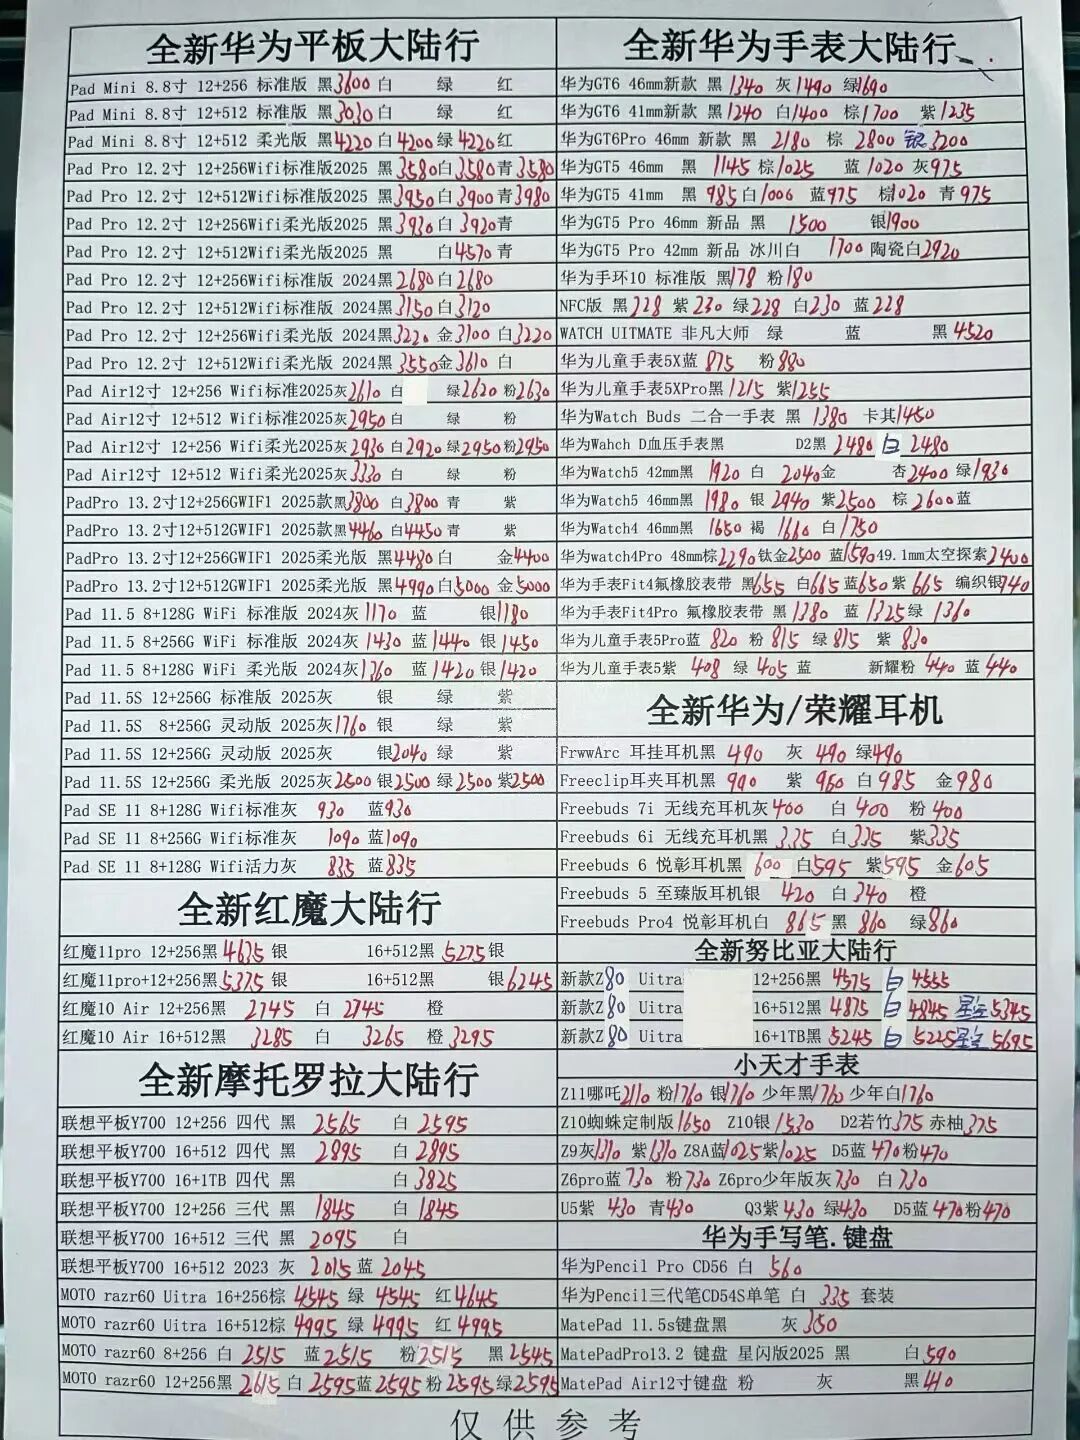 全新华为平板大陆行
Pad Mini 8.8寸 12+256 标准版 黑3600 白 绿 红
Pad Mini 8.8寸 12+512 标准版 黑3030 白 绿 红
Pad Mini 8.8寸 12+512 柔光版 黑4220 白4200 绿4220 红
Pad Pro 12.2寸 12+256Wifi标准版2025 黑3580 白3580 青3580
Pad Pro 12.2寸 12+512Wifi标准版2025 黑3950 白3900 青3980
Pad Pro 12.2寸 12+256Wifi柔光版2025 黑3930 白3920 青
Pad Pro 12.2寸 12+512Wifi柔光版2025 黑 白4570 青
Pad Pro 12.2寸 12+256Wifi标准版 2024黑2680 白2680
Pad Pro 12.2寸 12+512Wifi标准版 2024黑3150 白3120
Pad Pro 12.2寸 12+256Wifi柔光版 2024黑3220 金3100 白3220
Pad Pro 12.2寸 12+512Wifi柔光版 2024黑3550 金3610 白
Pad Air12寸 12+256 Wifi标准2025灰2610 白 绿2620 粉2630
Pad Air12寸 12+512 Wifi标准2025灰2950 白 绿 粉
Pad Air12寸 12+256 Wifi柔光2025灰2930 白2920 绿2950 粉2950
Pad Air12寸 12+512 Wifi柔光2025灰3330 白 绿 粉
PadPro 13.2寸12+256GWIF1 2025款黑3800 白3800 青 紫
PadPro 13.2寸12+512GWIF1 2025款黑4460 白4450 青 紫
PadPro 13.2寸12+256GWIF1 2025柔光版 黑4480 白 金4400
PadPro 13.2寸12+512GWIF1 2025柔光版 黑4990 白5000 金5000
Pad 11.5 8+128G WiFi 标准版 2024灰 1170 蓝 银1180
Pad 11.5 8+256G WiFi 标准版 2024灰 1430 蓝1440 银1450
Pad 11.5 8+128G WiFi 柔光版 2024灰1360 蓝1420 银1420
Pad 11.5S 12+256G 标准版 2025灰 银 绿 紫
Pad 11.5S 8+256G 灵动版 2025灰1760 银 绿 紫
Pad 11.5S 12+256G 灵动版 2025灰 银2040 绿 紫
Pad 11.5S 12+256G 柔光版 2025灰2500 银2500 绿2500 紫2500
Pad SE 11 8+128G Wifi标准灰 930 蓝930
Pad SE 11 8+256G Wifi标准灰 1090 蓝1090
Pad SE 11 8+128G Wifi活力灰 835 蓝835
全新红魔大陆行
红魔11pro 12+256黑4635 银 16+512黑 5275 银
红魔11pro+12+256黑5375 银 16+512黑 银6245
红魔10 Air 12+256黑 2745 白 2745 橙
红魔10 Air 16+512黑 3285 白 3265 橙 3295
全新摩托罗拉大陆行
联想平板Y700 12+256 四代 黑 2565 白 2595
联想平板Y700 16+512 四代 黑 2895 白 2895
联想平板Y700 16+1TB 四代 黑 白3825
联想平板Y700 12+256 三代 黑 1845 白 1845
联想平板Y700 16+512 三代 黑 2095 白
联想平板Y700 16+512 2023 灰 2015 蓝 2045
MOTO razr60 Uitra 16+256棕 4545 绿 4545 红4645
MOTO razr60 Uitra 16+512棕 4995 绿 4995 红 4995
MOTO razr60 8+256 白 2515 蓝2515 粉2515 黑2545
MOTO razr60 12+256黑 2615 白 2595 蓝2595 粉2595 绿2595
全新华为手表大陆行
华为GT6 46mm新款 黑 1340 灰1490 绿1690
华为GT6 41mm新款 黑1240 白1400 棕1700 紫1235
华为GT6Pro 46mm 新款 黑 2180 棕 2800 银3200
华为GT5 46mm 黑 1145 棕1025 蓝1020 灰975
华为GT5 41mm 黑 985 白1006 蓝975 棕1020 青975
华为GT5 Pro 46mm 新品 黑 1500 银1900
华为GT5 Pro 42mm 新品 冰川白 1700 陶瓷白2920
华为手环10 标准版 黑178 粉180
NFC版 黑228 紫230 绿228 白230 蓝228
WATCH UITMATE 非凡大师 绿 蓝 黑4520
华为儿童手表5X蓝 875 粉880
华为儿童手表5XPro黑1215 紫1255
华为Watch Buds 二合一手表 黑 1380 卡其1450
华为Wahch D血压手表黑 D2黑 2480 白 2480
华为Watch5 42mm黑 1920 白 2040 金 杏2400 绿1930
华为Watch5 46mm黑 1980 银 2940 紫2500 棕 2600 蓝
华为Watch4 46mm黑 1650 褐 1660 白1750
华为watch4Pro 48mm棕2290 钛金2500 蓝1590 49.1mm太空探索2400
华为手表Fit4氟橡胶表带 黑655 白665 蓝650 紫 665 编织银740
华为手表Fit4Pro 氟橡胶表带 黑1380 蓝 1325 绿 1360
华为儿童手表5Pro蓝 820 粉 815 绿 815 紫 830
华为儿童手表5紫 408 绿 405 蓝 新耀粉 440 蓝 440
全新华为/荣耀耳机
FrwwArc 耳挂耳机黑 490 灰 490 绿490
Freeclip耳夹耳机黑 990 紫 960 白985 金980
Freebuds 7i 无线充耳机灰400 白 400 粉400
Freebuds 6i 无线充耳机黑 335 白335 紫335
Freebuds 6 悦彰耳机黑 600 白595 紫595 金605
Freebuds 5 至臻版耳机银 420 白 340 橙
Freebuds Pro4 悦彰耳机白 865 黑 860 绿860
全新努比亚大陆行
新款Z80 Uitra 12+256黑 4575 白 4555
新款Z80 Uitra 16+512黑 4875 白 4845 星空5345
新款Z80 Uitra 16+1TB黑 5245 白 5225 星空5695
小天才手表
Z11哪吒2110 粉1760 银1760 少年黑1760 少年白1760
Z10蜘蛛定制版1650 Z10银1530 D2若竹375 赤柚375
Z9灰1310 紫1310 Z8A蓝1025 紫1025 D5蓝 470 粉470
Z6pro蓝730 粉730 Z6pro少年版灰730 白730
U5紫 430 青430 Q3紫430 绿430 D5蓝470 粉470
华为手写笔.键盘
华为Pencil Pro CD56 白 560
华为Pencil三代笔CD54S单笔 白 335 套装
MatePad 11.5s键盘黑 灰350
MatePadPro13.2 键盘 星闪版2025 黑 白590
MatePad Air12寸键盘 粉 灰 黑410
仅供参考